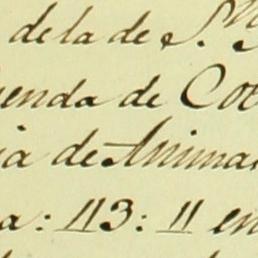 de la de S.
enda de Cob
ia de Anima
a: 113: 11 en